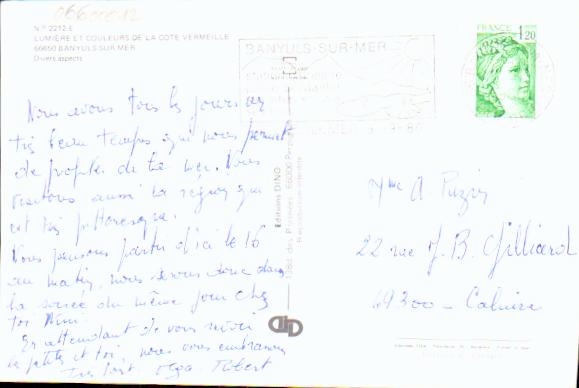 06600012
N° 2212 E
LUMIÈRE ET COULEURS DE LA COTE VERMEILLE
66650 BANYULS SUR MER
Divers aspects
FRANCE 1,20
BANYULS-SUR-MER
Nous avons tous les jours un
très beau temps qui nous permet
de profiter de la mer. Nous
visitons aussi la région qui
est très pittoresque.
Nous pensons partir d'ici le 16
au matin, nous serons donc dans
la soirée du même jour chez
toi
En attendant de vous revoir
la petite et toi, nous vous embrassons
Très fort. Olga Robert
Editions DINO
66000
Reproduction interdite
Mme A
22 rue J. B. Gilliard
69300 - Caluire